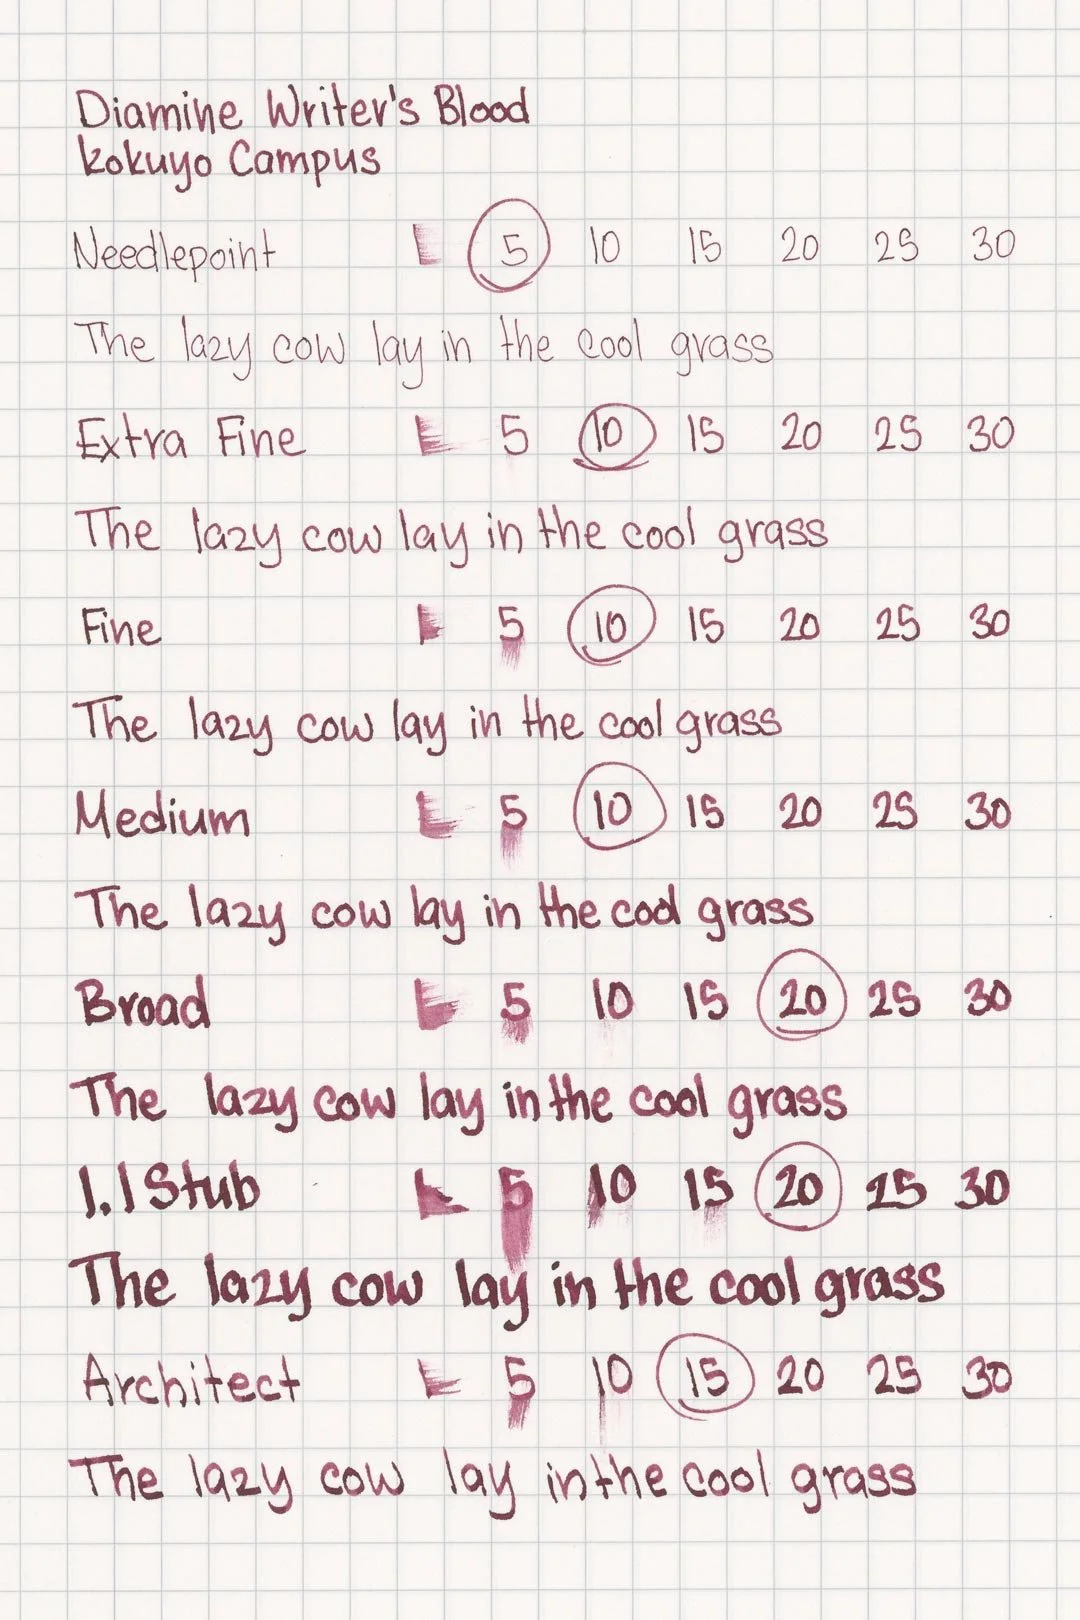 Diamine Writer's Blood
Kokuyo Campus
Needlepoint L 5 10 15 20 25 30
The lazy cow lay in the cool grass
Extra Fine L 5 10 15 20 25 30
The lazy cow lay in the cool grass
Fine L 5 10 15 20 25 30
The lazy cow lay in the cool grass
Medium L 5 10 15 20 25 30
The lazy cow lay in the cool grass
Broad L 5 10 15 20 25 30
The lazy cow lay in the cool grass
1.1 Stub L 5 10 15 20 25 30
The lazy cow lay in the cool grass
Architect L 5 10 15 20 25 30
The lazy cow lay in the cool grass